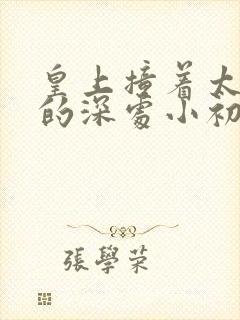 皇上撞着太
的深处小初
張學荣